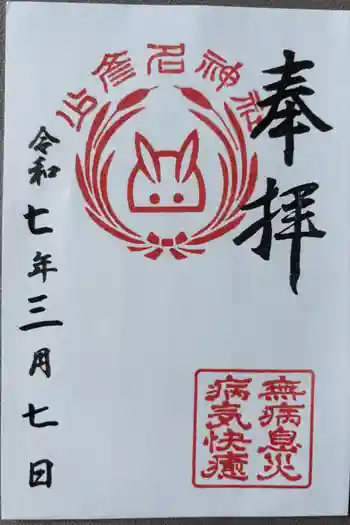 奉拝
少彦名神社
無病息災
病気快癒
令和七年三月七日